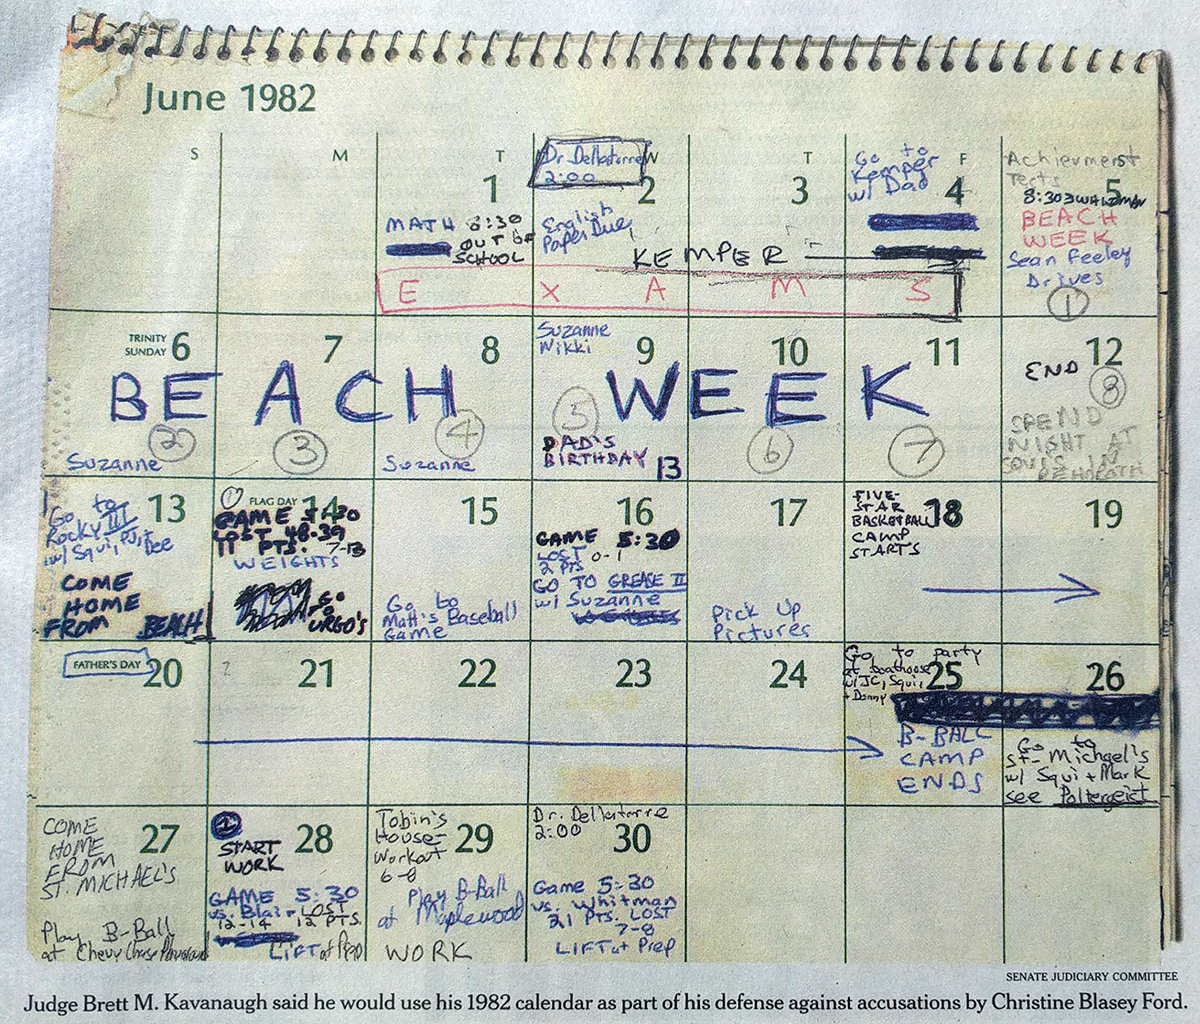 June 1982
S M T W T F S
1
MATH 8:30
OUT OF
SCHOOL
Dr. Dellatorre
2:00
2
English
Paper Due
3
KEMPER
Go to
Kemper
w/ Dad
4
Achievment
Tests
5
8:30 WHITMAN
BEACH
WEEK
Sean Feeley
Drives
1
E X A M S
TRINITY
SUNDAY 6
7
8
Suzanne
Nikki
9
10
11
12
END
8
BEACH WEEK
2
Suzanne
3
4
Suzanne
5
DAD'S
BIRTHDAY 13
6
7
SPEND
NIGHT AT
SQUI'S IN
REHOBOTH
Go to 13
Rocky III
w/ Squi, PJ,
Dee
COME
HOME
FROM BEACH
FLAG DAY 14
GAME 7:30
LOST 48-39
11 PTS. 7-13
WEIGHTS
GO
URGO'S
15
Go to
Matt's Baseball
Game
16
GAME 5:30
LOST 0-1
2 PTS
GO TO GREASE II
w/ Suzanne
17
Pick Up
Pictures
FIVE-
STAR 18
BASKETBALL
CAMP
STARTS
19
FATHER'S DAY 20
21
22
23
24
Go to party
at boathouse 25
w/ JC, Squi,
+ Donny
B-BALL
CAMP
ENDS
26
Go to
St. Michael's
w/ Squi + Mark
see Poltergeist
COME 27
HOME
FROM
ST. MICHAEL'S
Play B-Ball
at Chevy Chase
28
START
WORK
GAME 5:30
vs. Blair - LOST
12-14 12 PTS.
LIFT at Prep
Tobin's
House- 29
Workout
6-8
Play B-Ball
at Maplewood
WORK
Dr. Dellatorre
2:00 30
Game 5:30
vs. Whitman
21 PTS. LOST
7-8
LIFT at Prep
SENATE JUDICIARY COMMITTEE
Judge Brett M. Kavanaugh said he would use his 1982 calendar as part of his defense against accusations by Christine Blasey Ford.